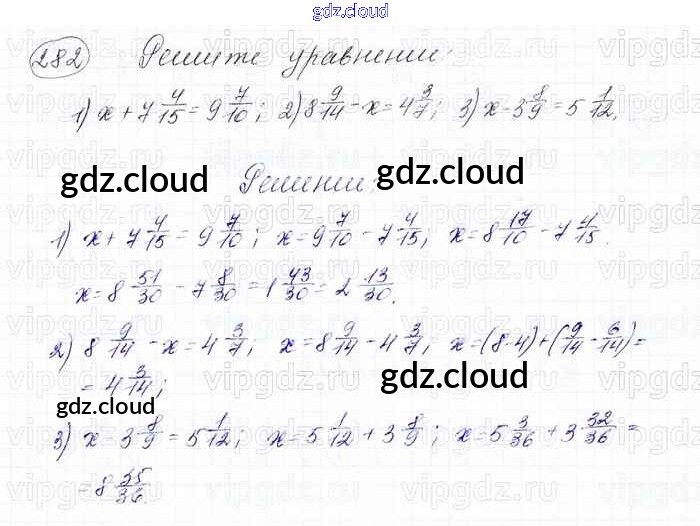 gdz.cloud
282 Решите уравнение:
1) x + 7 4/15 = 9 7/10; 2) 8 9/14 - x = 4 3/7; 3) x - 3 8/9 = 5 1/12.
gdz.cloud Решение: gdz.cloud
1) x + 7 4/15 = 9 7/10; x = 9 7/10 - 7 4/15; x = 8 17/10 - 7 4/15.
x = 8 51/30 - 7 8/30 = 1 43/30 = 2 13/30.
2) 8 9/14 - x = 4 3/7; x = 8 9/14 - 4 3/7; x = (8-4) + (9/14 - 6/14) =
= 4 3/14;
gdz.cloud
gdz.cloud
3) x - 3 8/9 = 5 1/12; x = 5 1/12 + 3 8/9; x = 5 3/36 + 3 32/36 =
= 8 35/36.